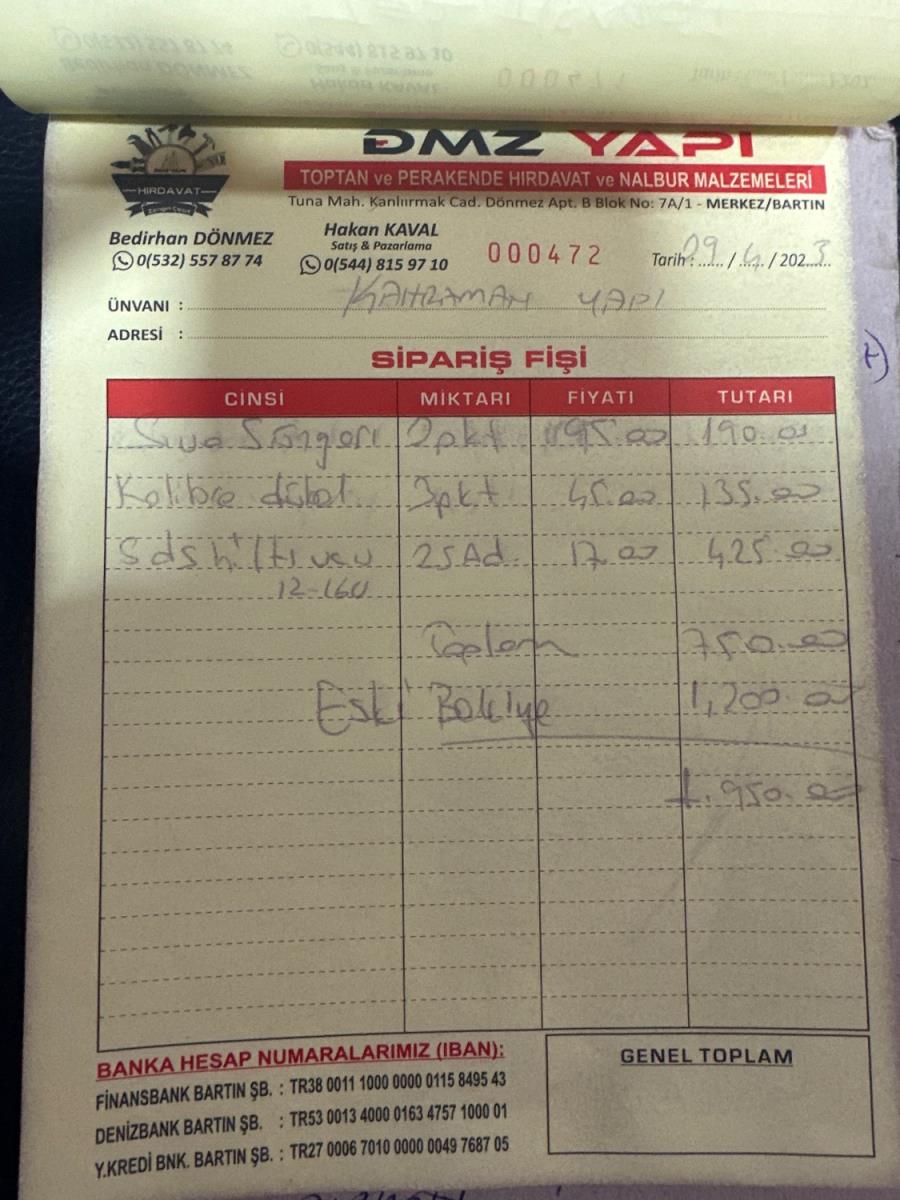 0(532) 557 87 74 0(544) 815 97 10
Bedirhan DÖNMEZ Satış & Pazarlama
Hakan KAVAL
HIRDAVAT
DMZ YAPI
TOPTAN ve PERAKENDE HIRDAVAT ve NALBUR MALZEMELERİ
Tuna Mah. Kanlıırmak Cad. Dönmez Apt. B Blok No: 7A/1 - MERKEZ/BARTIN
Bedirhan DÖNMEZ
0(532) 557 87 74
Hakan KAVAL
Satış & Pazarlama
0(544) 815 97 10
000472
Tarih : 09 / 4 / 2023
ÜNVANI : KAHRAMAN YAPI
ADRESİ :
SİPARİŞ FİŞİ
CİNSİ MİKTARI FİYATI TUTARI
Sıva Süngeri 2pkt 95.00 190.00
Kalibre dübel 3pkt 45.00 135.00
Sds hilti ucu 25Ad 17.00 425.00
12-160
Toplam 750.00
Eski Bakiye 1,200.00
1.950.00
BANKA HESAP NUMARALARIMIZ (IBAN):
FİNANSBANK BARTIN ŞB. : TR38 0011 1000 0000 0115 8495 43
DENİZBANK BARTIN ŞB. : TR53 0013 4000 0163 4757 1000 01
Y.KREDİ BNK. BARTIN ŞB. : TR27 0006 7010 0000 0049 7687 05
GENEL TOPLAM